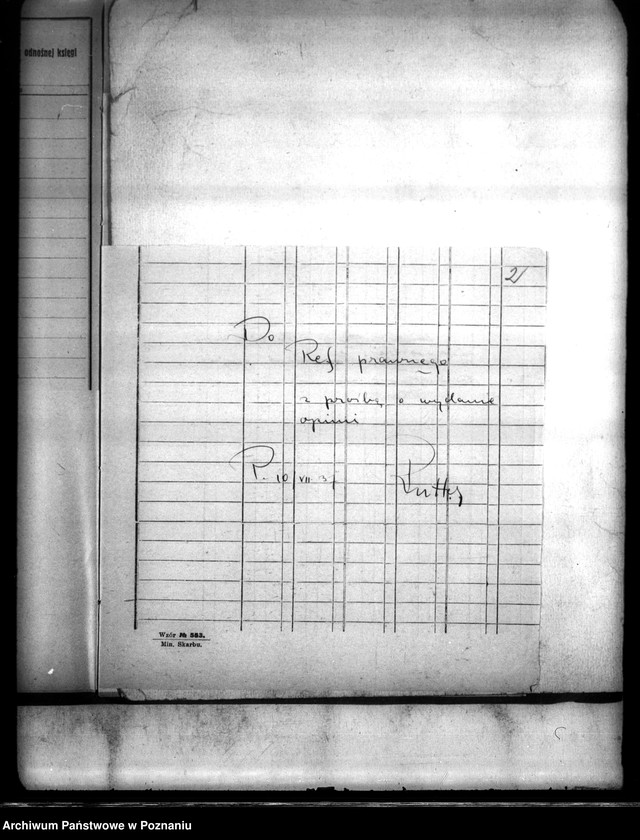 odnośnej księgi
2
Do
Ref. prawnego
z prośbą o wydanie
opinii
P. 10 VII 31
Wzór № 553.
Min. Skarbu.
Archiwum Państwowe w Poznaniu